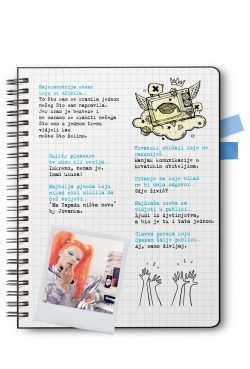 Najsramotnija stvar
koju si učinila...
To što sam se sramila jednom
nečeg što sam napravila.
Jer sram je bezveze i
ne moramo se sramiti nečega
što smo u jednom trenu
vidjeli kao
nešto što želimo.
Guilty pleasure
tv show ili serija...
Iskreno, nemam je.
Imam ukusa!
Najbolja pjesma koju
nikad nisi mislila da
ćeš voljeti...
"Na Zapadu ništa novo"
by Jovanka.
Hrvatski običaji koje ne
razumiješ...
Manjak komunikacije u
hrvatskim obiteljima.
Pitanje na koje nikad
ne bi dala odgovor...
Gdje živiš?
Najdraža osoba za
vidjeti u publici...
Ljudi iz djetinjstva,
a bio je tu i tata jednom.
Glavna poruka koju
Spazam šalje publici...
Aj, samo divljaj.